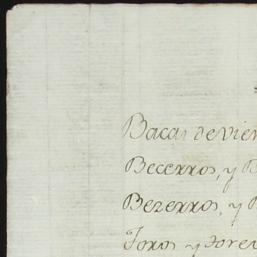 Bacas de vien
Becerros, y B
Bezerros, y B
Toros y Tore